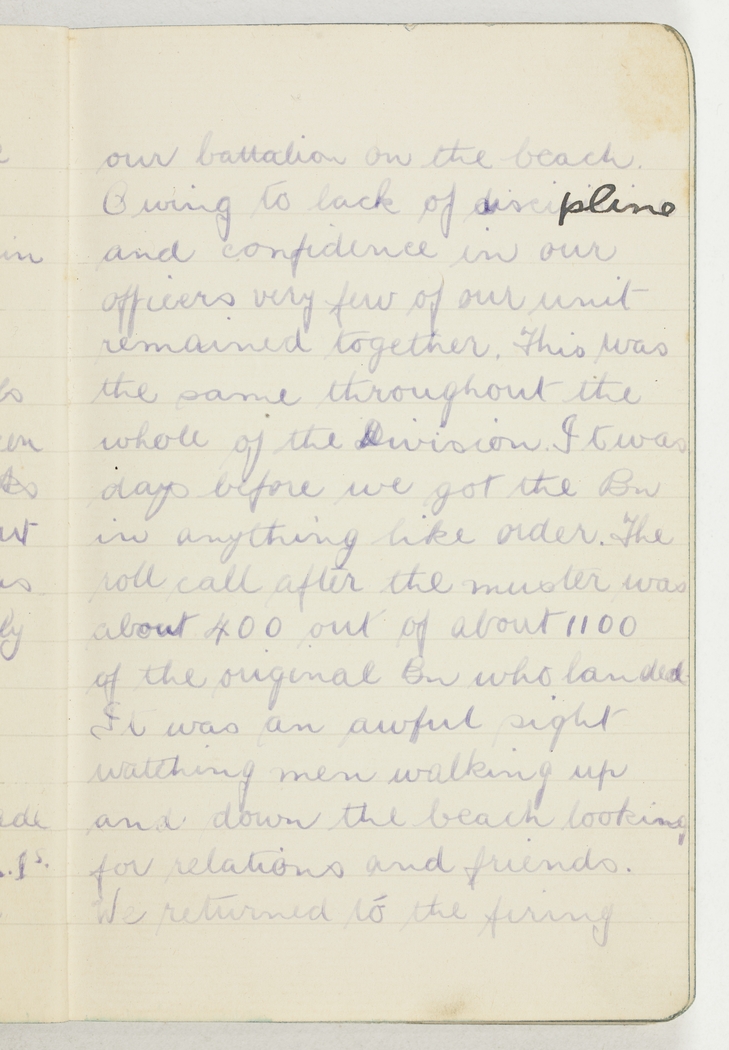 our battalion on the beach.
Owing to lack of discipline
and confidence in our
officers very few of our unit
remained together. This was
the same throughout the
whole of the Division. It was
days before we got the Bn
in anything like order. The
roll call after the muster was
about 400 out of about 1100
of the original Bn who landed
It was an awful sight
watching men walking up
and down the beach looking
for relations and friends.
We returned to the firing